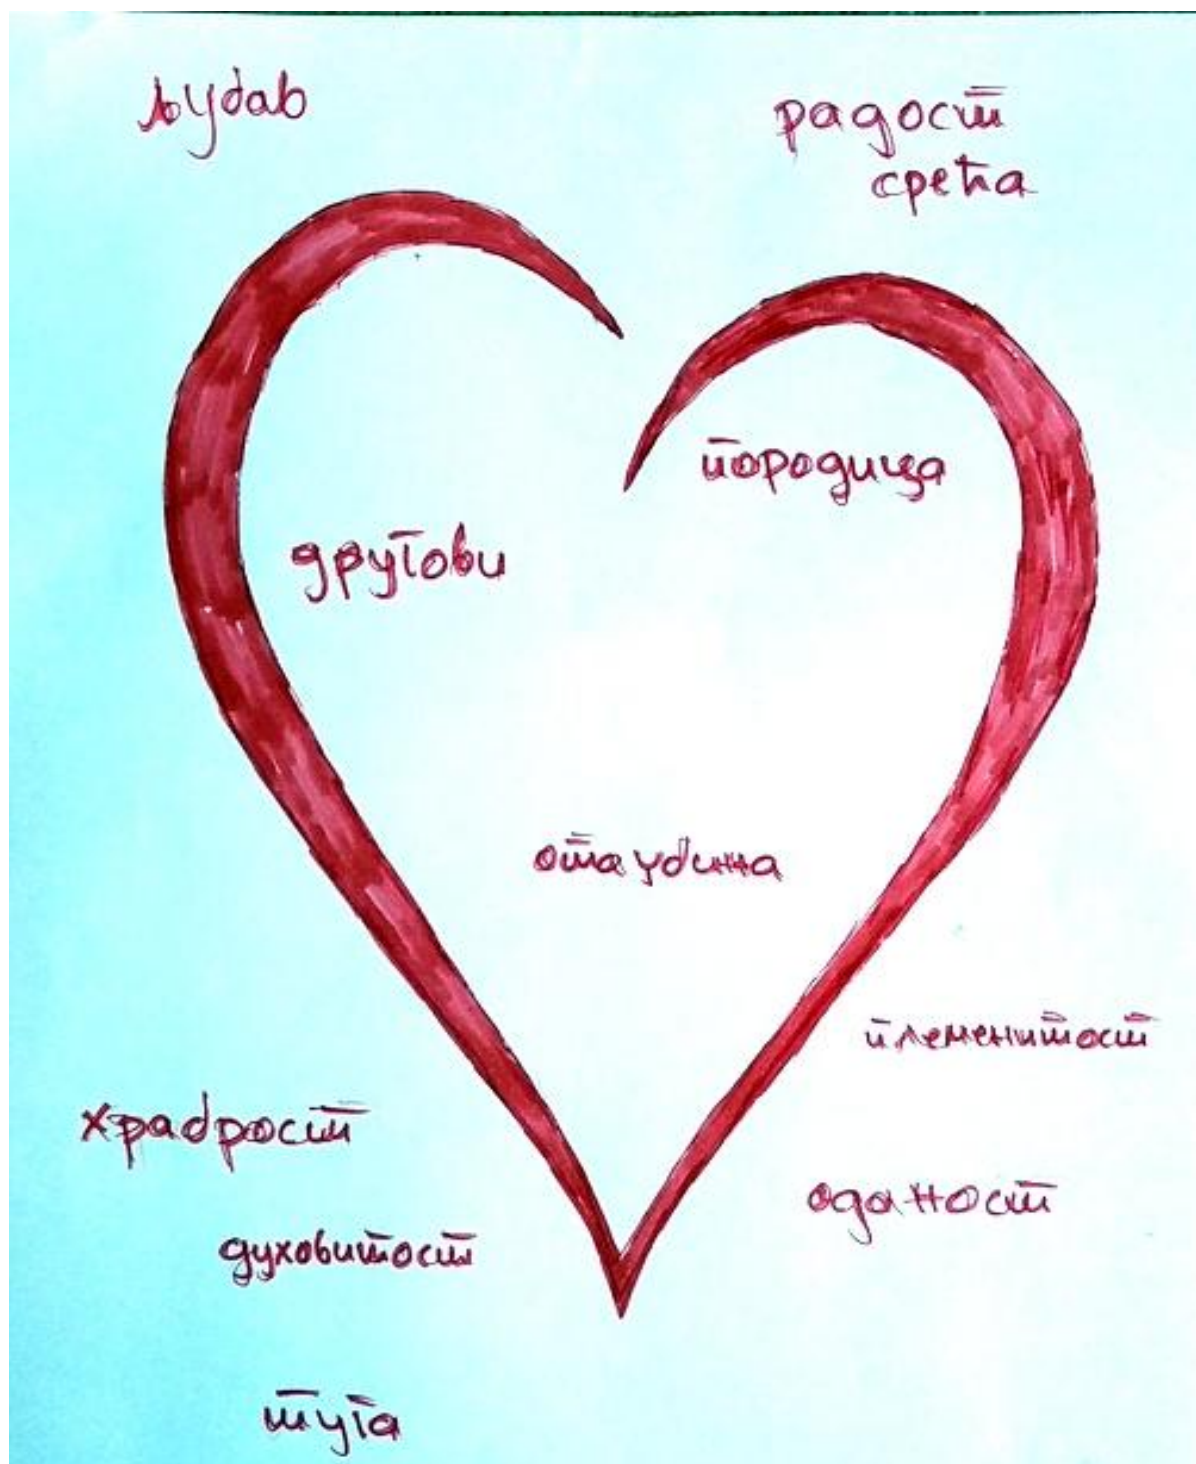 љубав
радост
срећа
породица
другови
отаџбина
племенитост
храброст
оданост
духовитост
туга